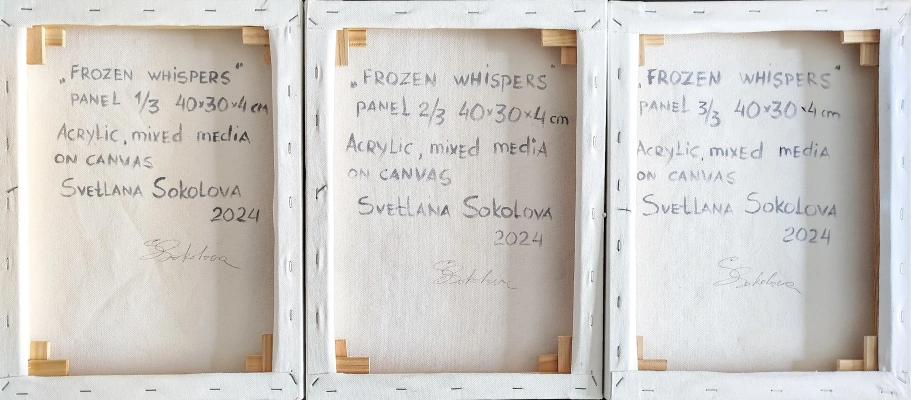 „FROZEN WHISPERS“
PANEL 1/3 40×30×4 cm
ACRYLIC, MIXED MEDIA
ON CANVAS
SVETLANA SOKOLOVA
2024
SSokolova
„FROZEN WHISPERS“
PANEL 2/3 40×30×4 cm
ACRYLIC, MIXED MEDIA
ON CANVAS
SVETLANA SOKOLOVA
2024
SSokolova
„FROZEN WHISPERS“
PANEL 3/3 40×30×4 cm
ACRYLIC, MIXED MEDIA
ON CANVAS
SVETLANA SOKOLOVA
2024
SSokolova